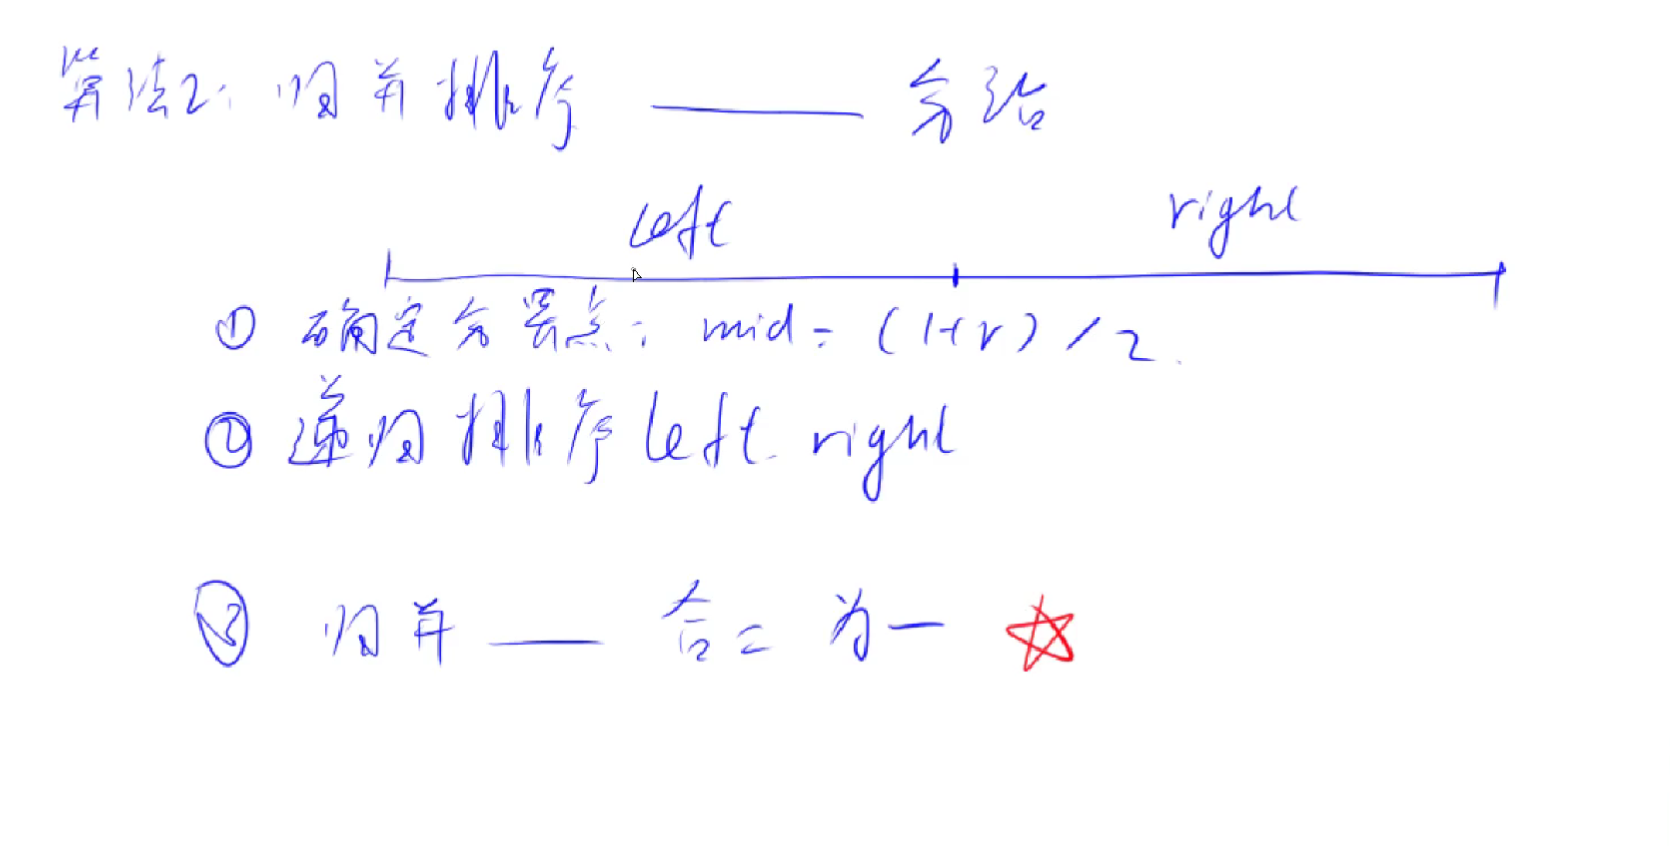 算法2: 归并排序 —— 分治
left right
① 确定分界点: mid = (l+r) / 2
② 递归排序 left right
③ 归并 —— 合二为一 ☆